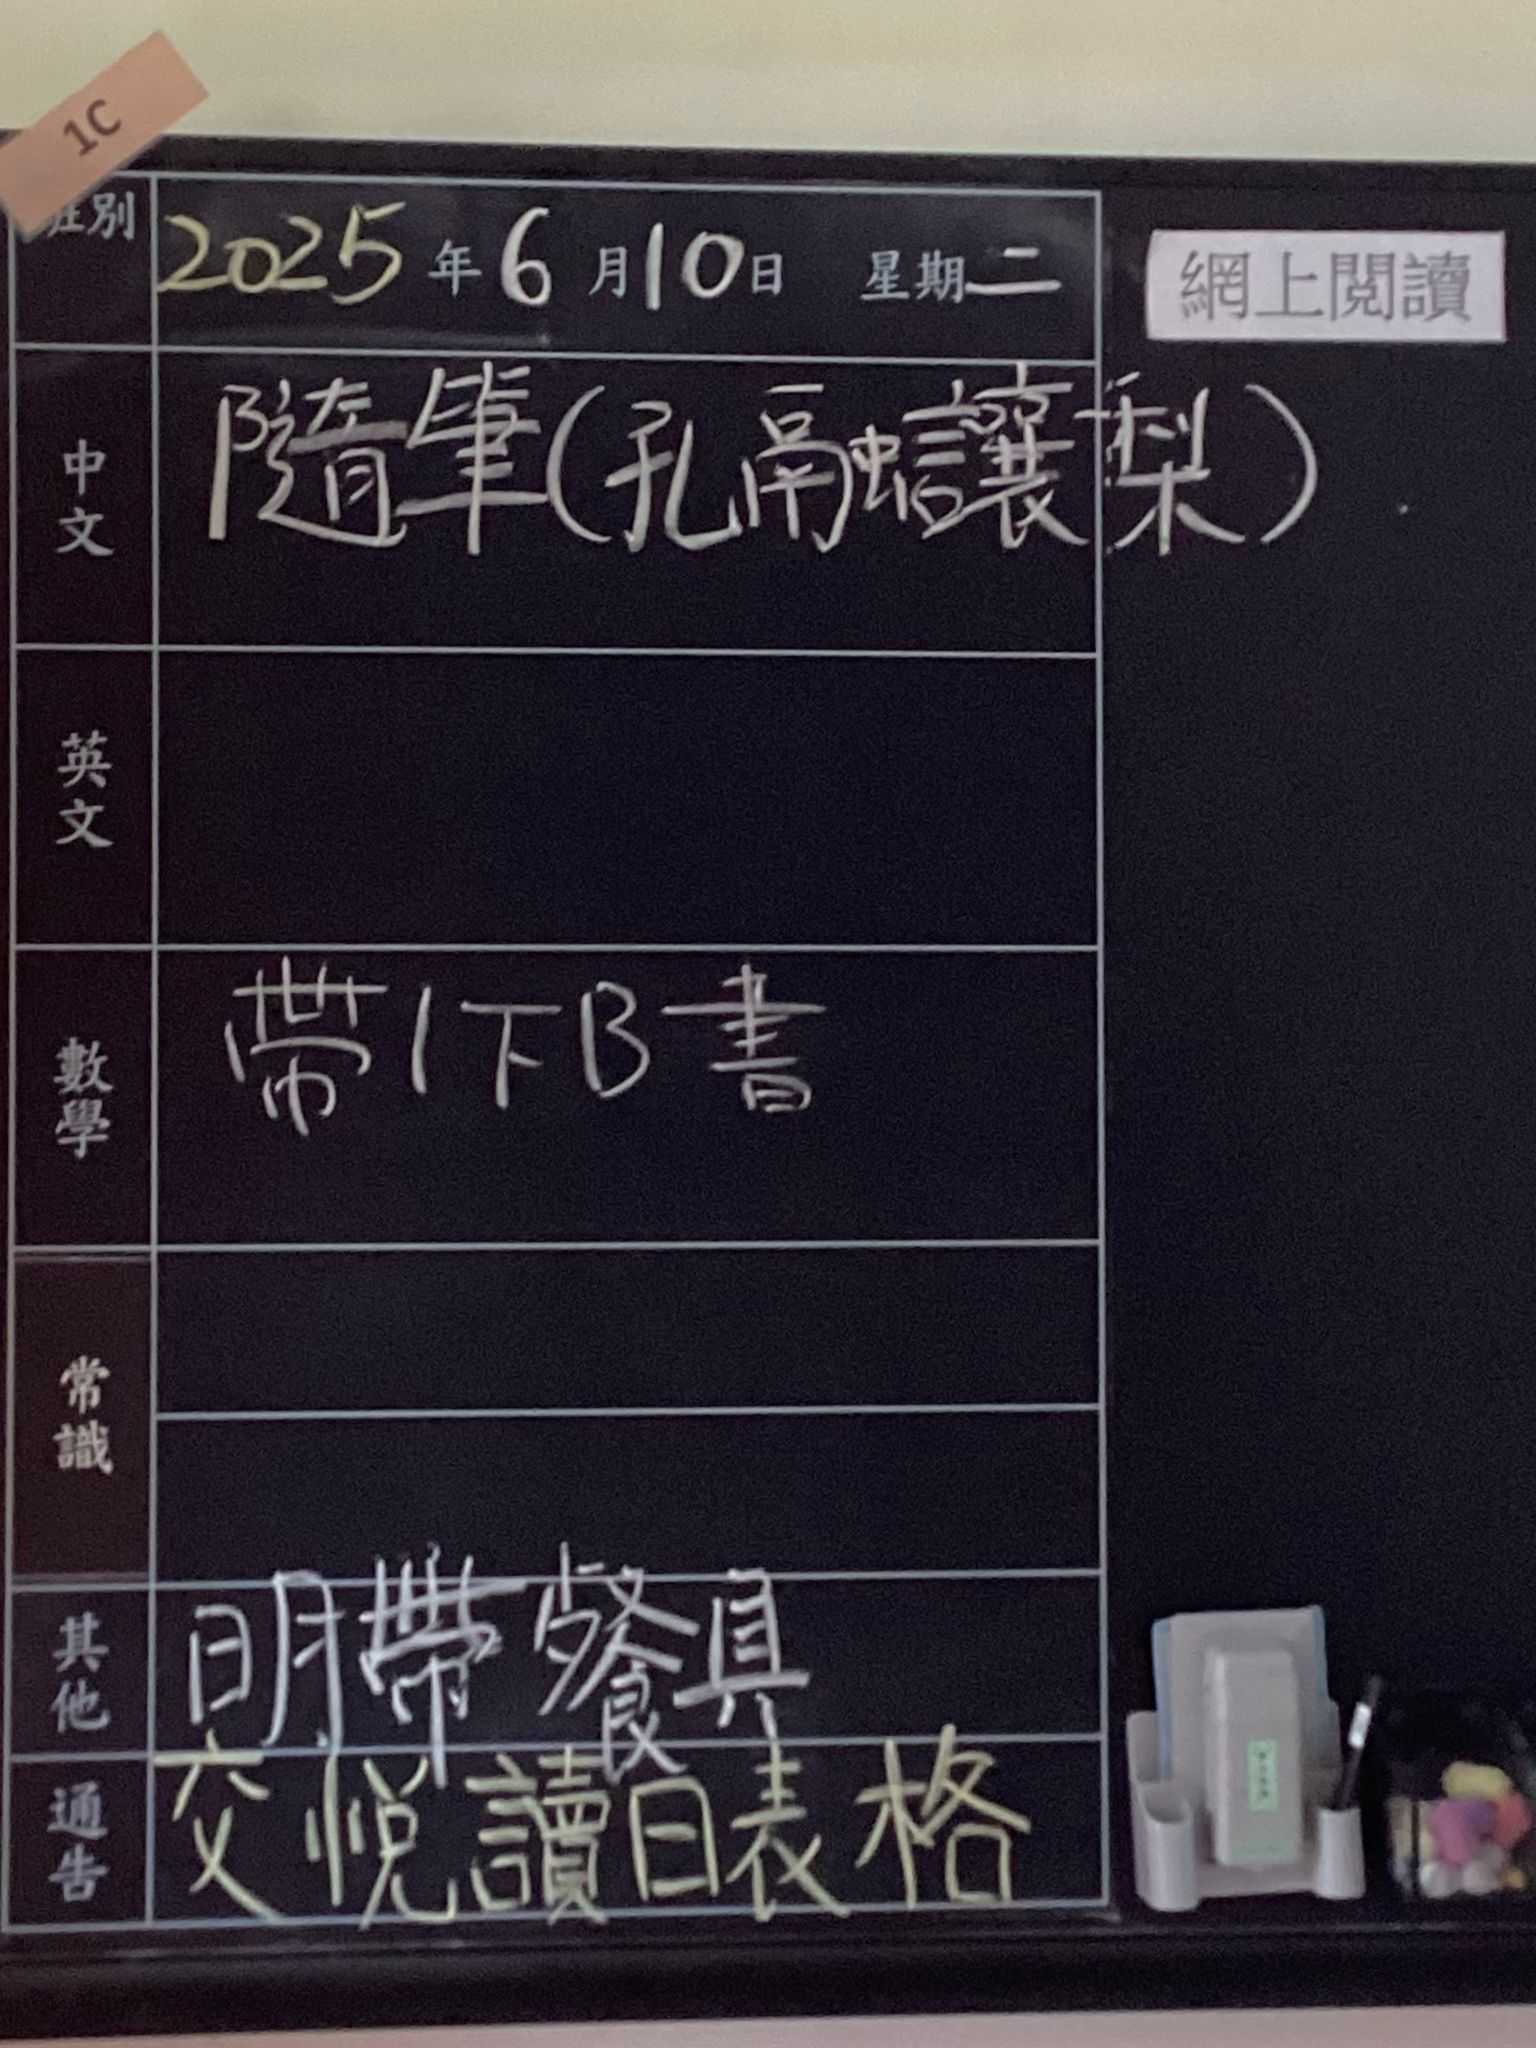 1C
班別
2025年6月10日 星期二
網上閱讀
中文
隨筆(孔融讓梨)
英文
數學
帶1下B書
常識
其他
明帶餐具
通告
交悅讀日表格